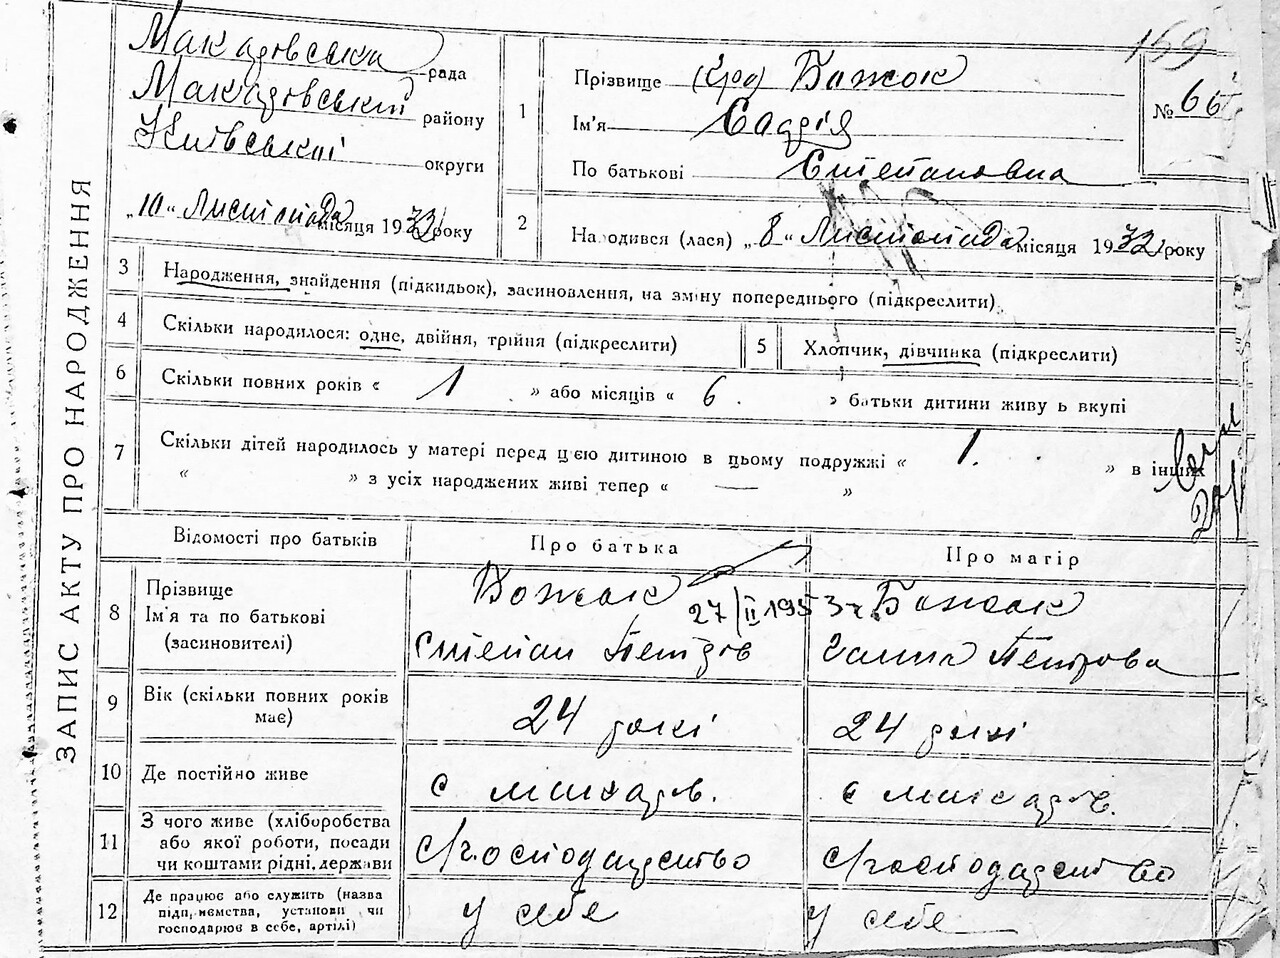 159
ЗАПИС АКТУ ПРО НАРОДЖЕННЯ
Макарівська рада
Макарівський району
Київської округи
„10“ Листопада місяця 1932 року
1
Прізвище Бажок
Ім'я
По батькові Степановна
№ 66
2
Народився (лася) „8“ Листопада місяця 1932 року
3
Народження, знайдення (підкидьок), засиновлення, на зміну попереднього (підкреслити).
4
Скільки народилося: одне, двійня, трійня (підкреслити)
5
Хлопчик, дівчинка (підкреслити)
6
Скільки повних років « 1 » або місяців « 6 . » батьки дитини живуть вкупі
7
Скільки дітей народилось у матері перед цією дитиною в цьому подружжі « 1. » в інших
« » з усіх народжених живі тепер « — »
Відомості про батьків
Про батька
Про матір
8
Прізвище
Ім'я та по батькові
(засиновителі)
Бажок
27/II 1953 г.
Степан Петров
Бажок
Ганна Петрова
9
Вік (скільки повних років має)
24 рокі
24 рокі
10
Де постійно живе
с Макарів.
с Макарів.
11
З чого живе (хліборобства
або якої роботи, посади
чи коштами рідні, держави
с/господарство
с/господарство
12
Де працює або служить (назва
підприємства, установи чи
господарює в себе, артілі)
у себе
у себе